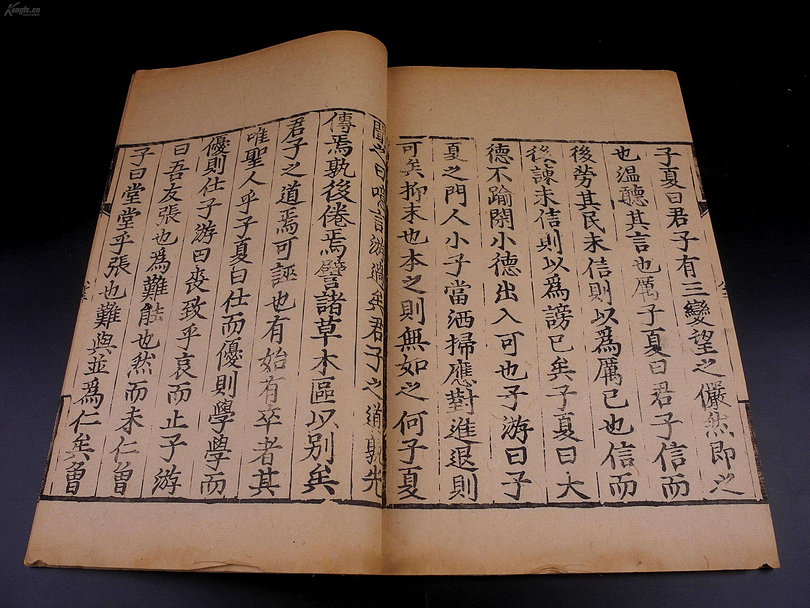 子夏曰君子有三變望之儼然即之
也溫聽其言也厲子夏曰君子信而
後勞其民未信則以為厲已也信而
後諫未信則以為謗已矣子夏曰大
德不踰閑小德出入可也子游曰子
夏之門人小子當洒掃應對進退則
可矣抑末也本之則無如之何子夏
聞之曰噫言游過矣君子之道孰先
傳焉孰後倦焉譬諸草木區以別矣
君子之道焉可誣也有始有卒者其
唯聖人乎子夏曰仕而優則學學而
優則仕子游曰喪致乎哀而止子游
曰吾友張也為難能也然而未仁曾
子曰堂堂乎張也難與並為仁矣曾
Kongfz.cn